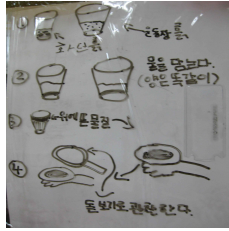 ①
화단흙
운동장 흙
② 물을 담는다.
(양은 똑같이)
③ 위에 뜬 물질
④
돋보기로 관찰한다.